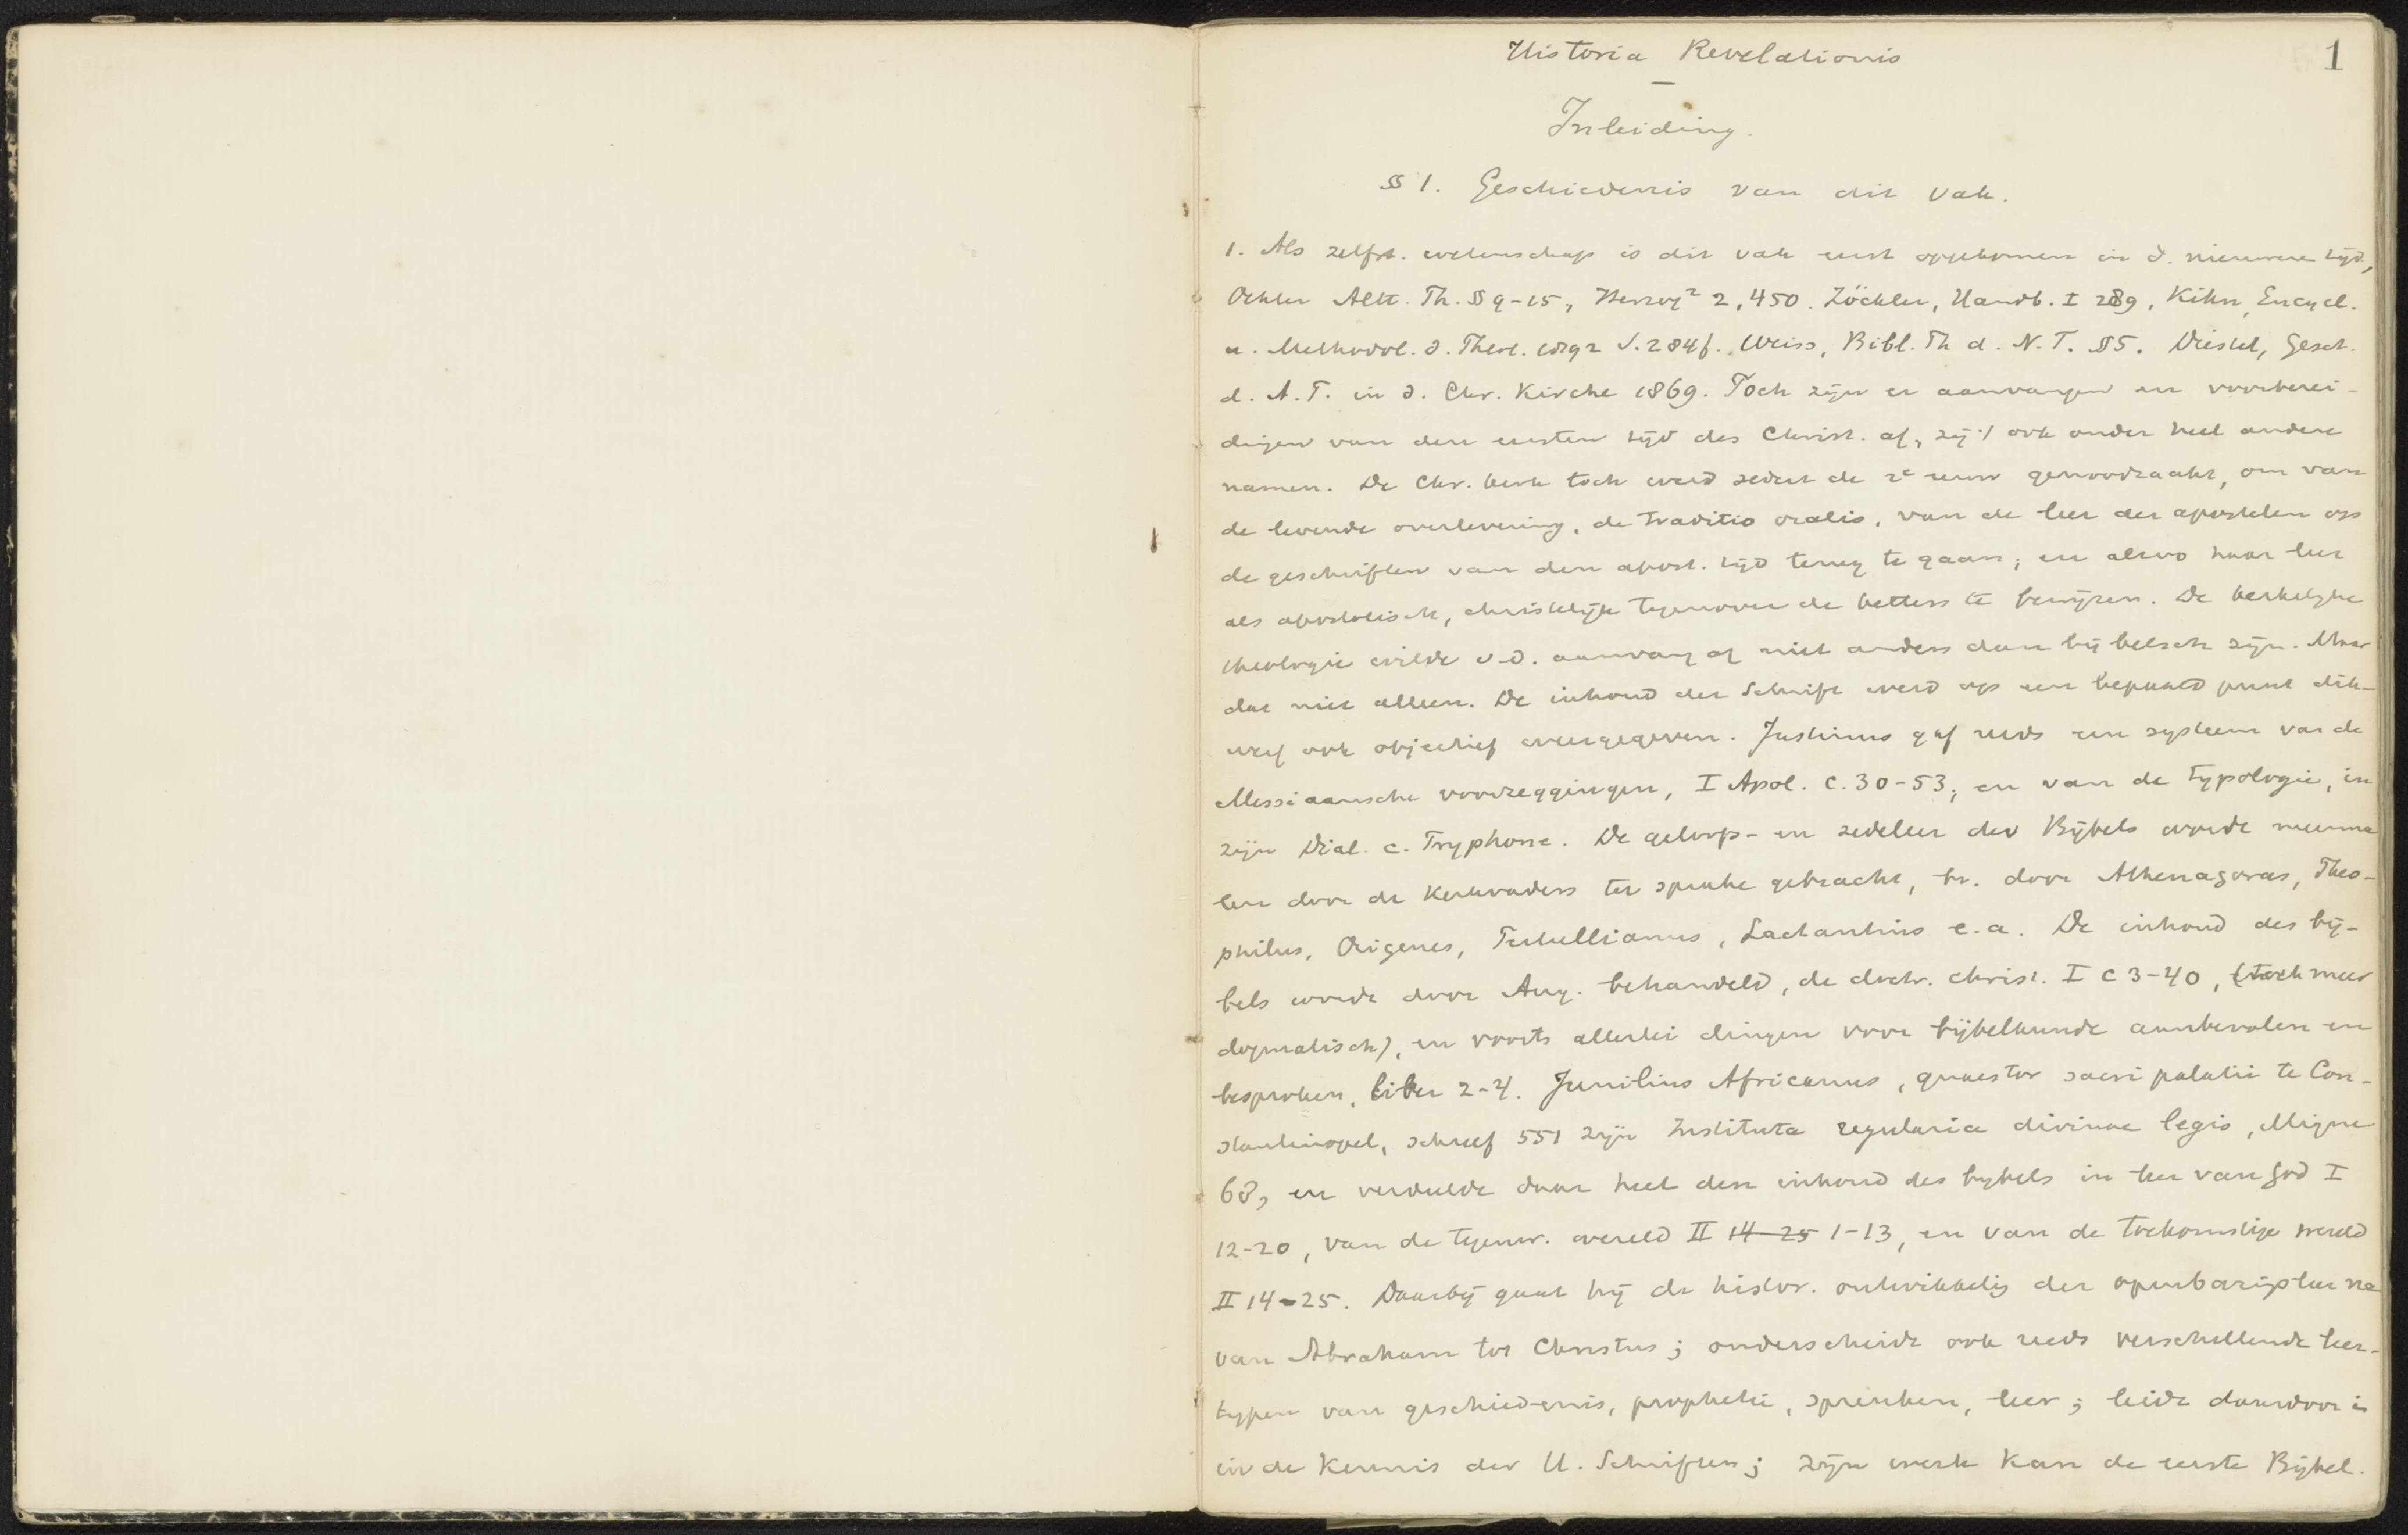 1
Historia Revelationis
Inleiding.
§ 1. Geschiedenis van dit vak.
1. Als zelfst. wetenschap is dit vak eerst opgekomen in d. nieuwere tijd,
Oehler Altt. Th. § 9-15, Herzog² 2,450. Zöckler, Handb. I 289, Kihn, Encycl.
u. Methodol. d. Theol. 1892 S. 284f. Weiss, Bibl. Th d. N. T. § 5. Diestel, Gesch.
d. A. T. in d. Chr. Kirche 1869. Toch zijn er aanvangen en voorberei-
dingen van den eersten tijd des Christ. af, zij 't ook onder heel andere
namen. De Chr. kerk toch werd sedert de 2e eeuw genoodzaakt, om van
de levende overlevering, de traditio oralis, van de leer der apostelen op
de geschriften van den apost. tijd terug te gaan; en alzoo haar leer
als apostolisch, christelijk tegenover de ketters te bewijzen. De kerkelijke
theologie wilde v. d. aanvang af niet anders dan bijbelsch zijn. Maar
dat niet alleen. De inhoud der Schrift werd op een bepaald punt dik-
werf ook objectief weergegeven. Justinus gaf reeds een systeem van de
Messiaansche voorzeggingen, I Apol. c. 30-53, en van de typologie, in
zijn Dial. c. Tryphone. De geloofs- en zedeleer des Bijbels werde meerma
len door de Kerkvaders ter sprake gebracht, bv. door Athenagoras, Theo-
philus, Origenes, Tertullianus, Lactantius e. a. De inhoud des bij-
bels werde door Aug. behandeld, de doctr. christ. I c 3-40, (toch meer
dogmatisch), en voorts allerlei dingen voor bijbelkunde aanbevolen en
besproken, liber 2-4. Junilius Africanus, quaestor sacri palatii te Con-
stantinopel, schreef 551 zijn Instituta regularia divinae legis, Migne
68, en verdeelde daar heel den inhoud des bybels in leer van God I
12-20, van de tegenw. wereld II 14-25 1-13, en van de toekomstige wereld
II 14-25. Daarbij gaat hij de histor. ontwikkelig der openbarigsleer na
van Abraham tot Christus; onderscheidt ook reeds verschillende leer-
typen van geschiedenis, prophetie, spreuken, leer; leidt daardoor in
in de kennis der H. Schriften; zijn werk kan de eerste Bijbel.